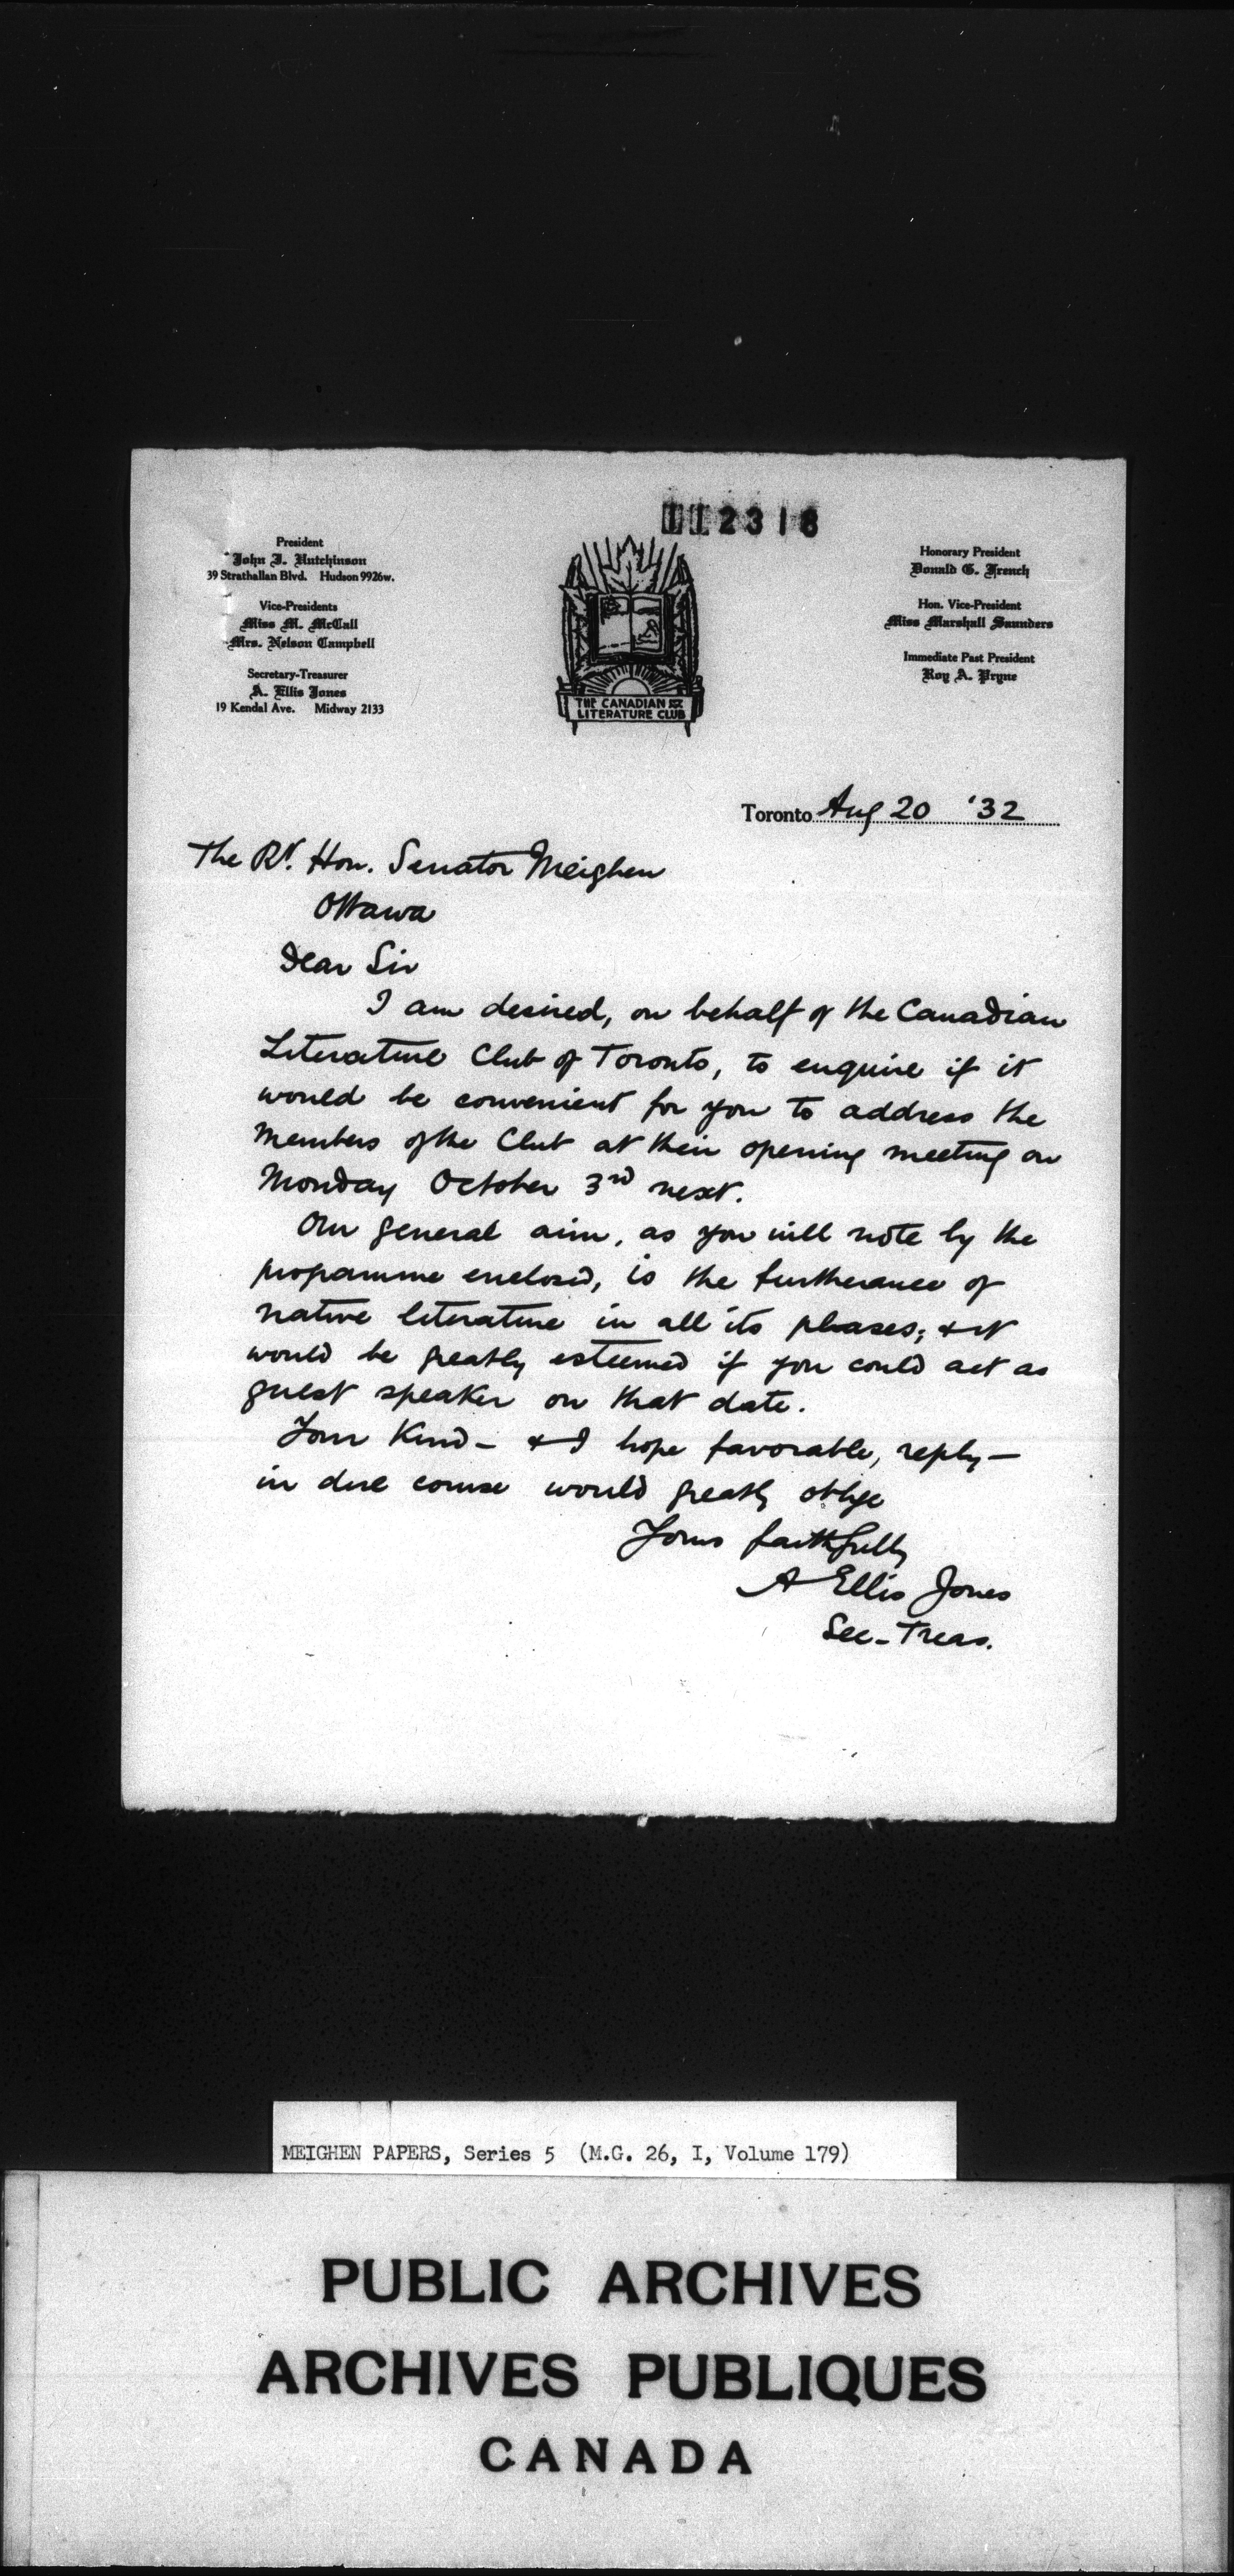 112318
President
John J. Hutchinson
39 Strathallan Blvd. Hudson 9926w.
Vice-Presidents
Miss M. McCall
Mrs. Nelson Campbell
Secretary-Treasurer
A. Ellis Jones
19 Kendal Ave. Midway 2133
THE CANADIAN
LITERATURE CLUB
Honorary President
Donald G. French
Hon. Vice-President
Miss Marshall Saunders
Immediate Past President
Roy A. Pryne
Toronto Aug 20 '32
The Rt. Hon. Senator Meighen
Ottawa
Dear Sir
I am desired, on behalf of the Canadian
Literature Club of Toronto, to enquire if it
would be convenient for you to address the
members of the Club at their opening meeting on
Monday October 3rd next.
Our general aim, as you will note by the
programme enclosed, is the furtherance of
native literature in all its phases; & it
would be greatly esteemed if you could act as
guest speaker on that date.
Your kind - & I hope favorable, reply -
in due course would greatly oblige
Yours faithfully
A Ellis Jones
Sec-Treas.
MEIGHEN PAPERS, Series 5 (M.G. 26, I, Volume 179)
PUBLIC ARCHIVES
ARCHIVES PUBLIQUES
CANADA